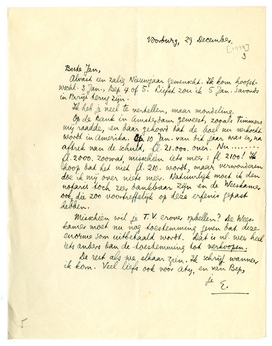 Voorburg, 29 December,
[1999]
3
Beste Jan,
Alvast een zalig Nieuwjaar gewenscht. Ik kom hoogst-
wschl. 3 Jan. Bep 4 of 5. Liefst zou ik 5 Jan. 's avonds
in Parijs terug zijn.
Ik heb je veel te vertellen, maar mondeling.
Op de Bank in Amsterdam geweest, zooals Timmers
mij raadde, en daar gehoord dat de boel nu verkocht
wordt in Amerika. Op 10 Jan. van dit jaar was er, na
aftrek van de schuld, fl. 21.000. over. Nu
fl. 2000. zoowat, misschien iets meer: fl. 2100! Ik
hoop dat het niet fl. 210. wordt, maar
die ik mij over niets meer. Natuurlijk moet ik den
notaris toch zeer dankbaar zijn en de
ook, die zoo voortreffelijk op deze erfenis gepast
hebben.
Misschien wil je T.V. erover opbellen? De
moet nu nog toestemming geven dat deze
enorme som uitbetaald wordt. Dat is nl. weer heel
iets anders dan de toestemming tot verkoopen.
De rest als we elkaar zien. Ik schrijf wanneer
ik kom. Veel liefs ook voor Aty, en van Bep,
je
E.